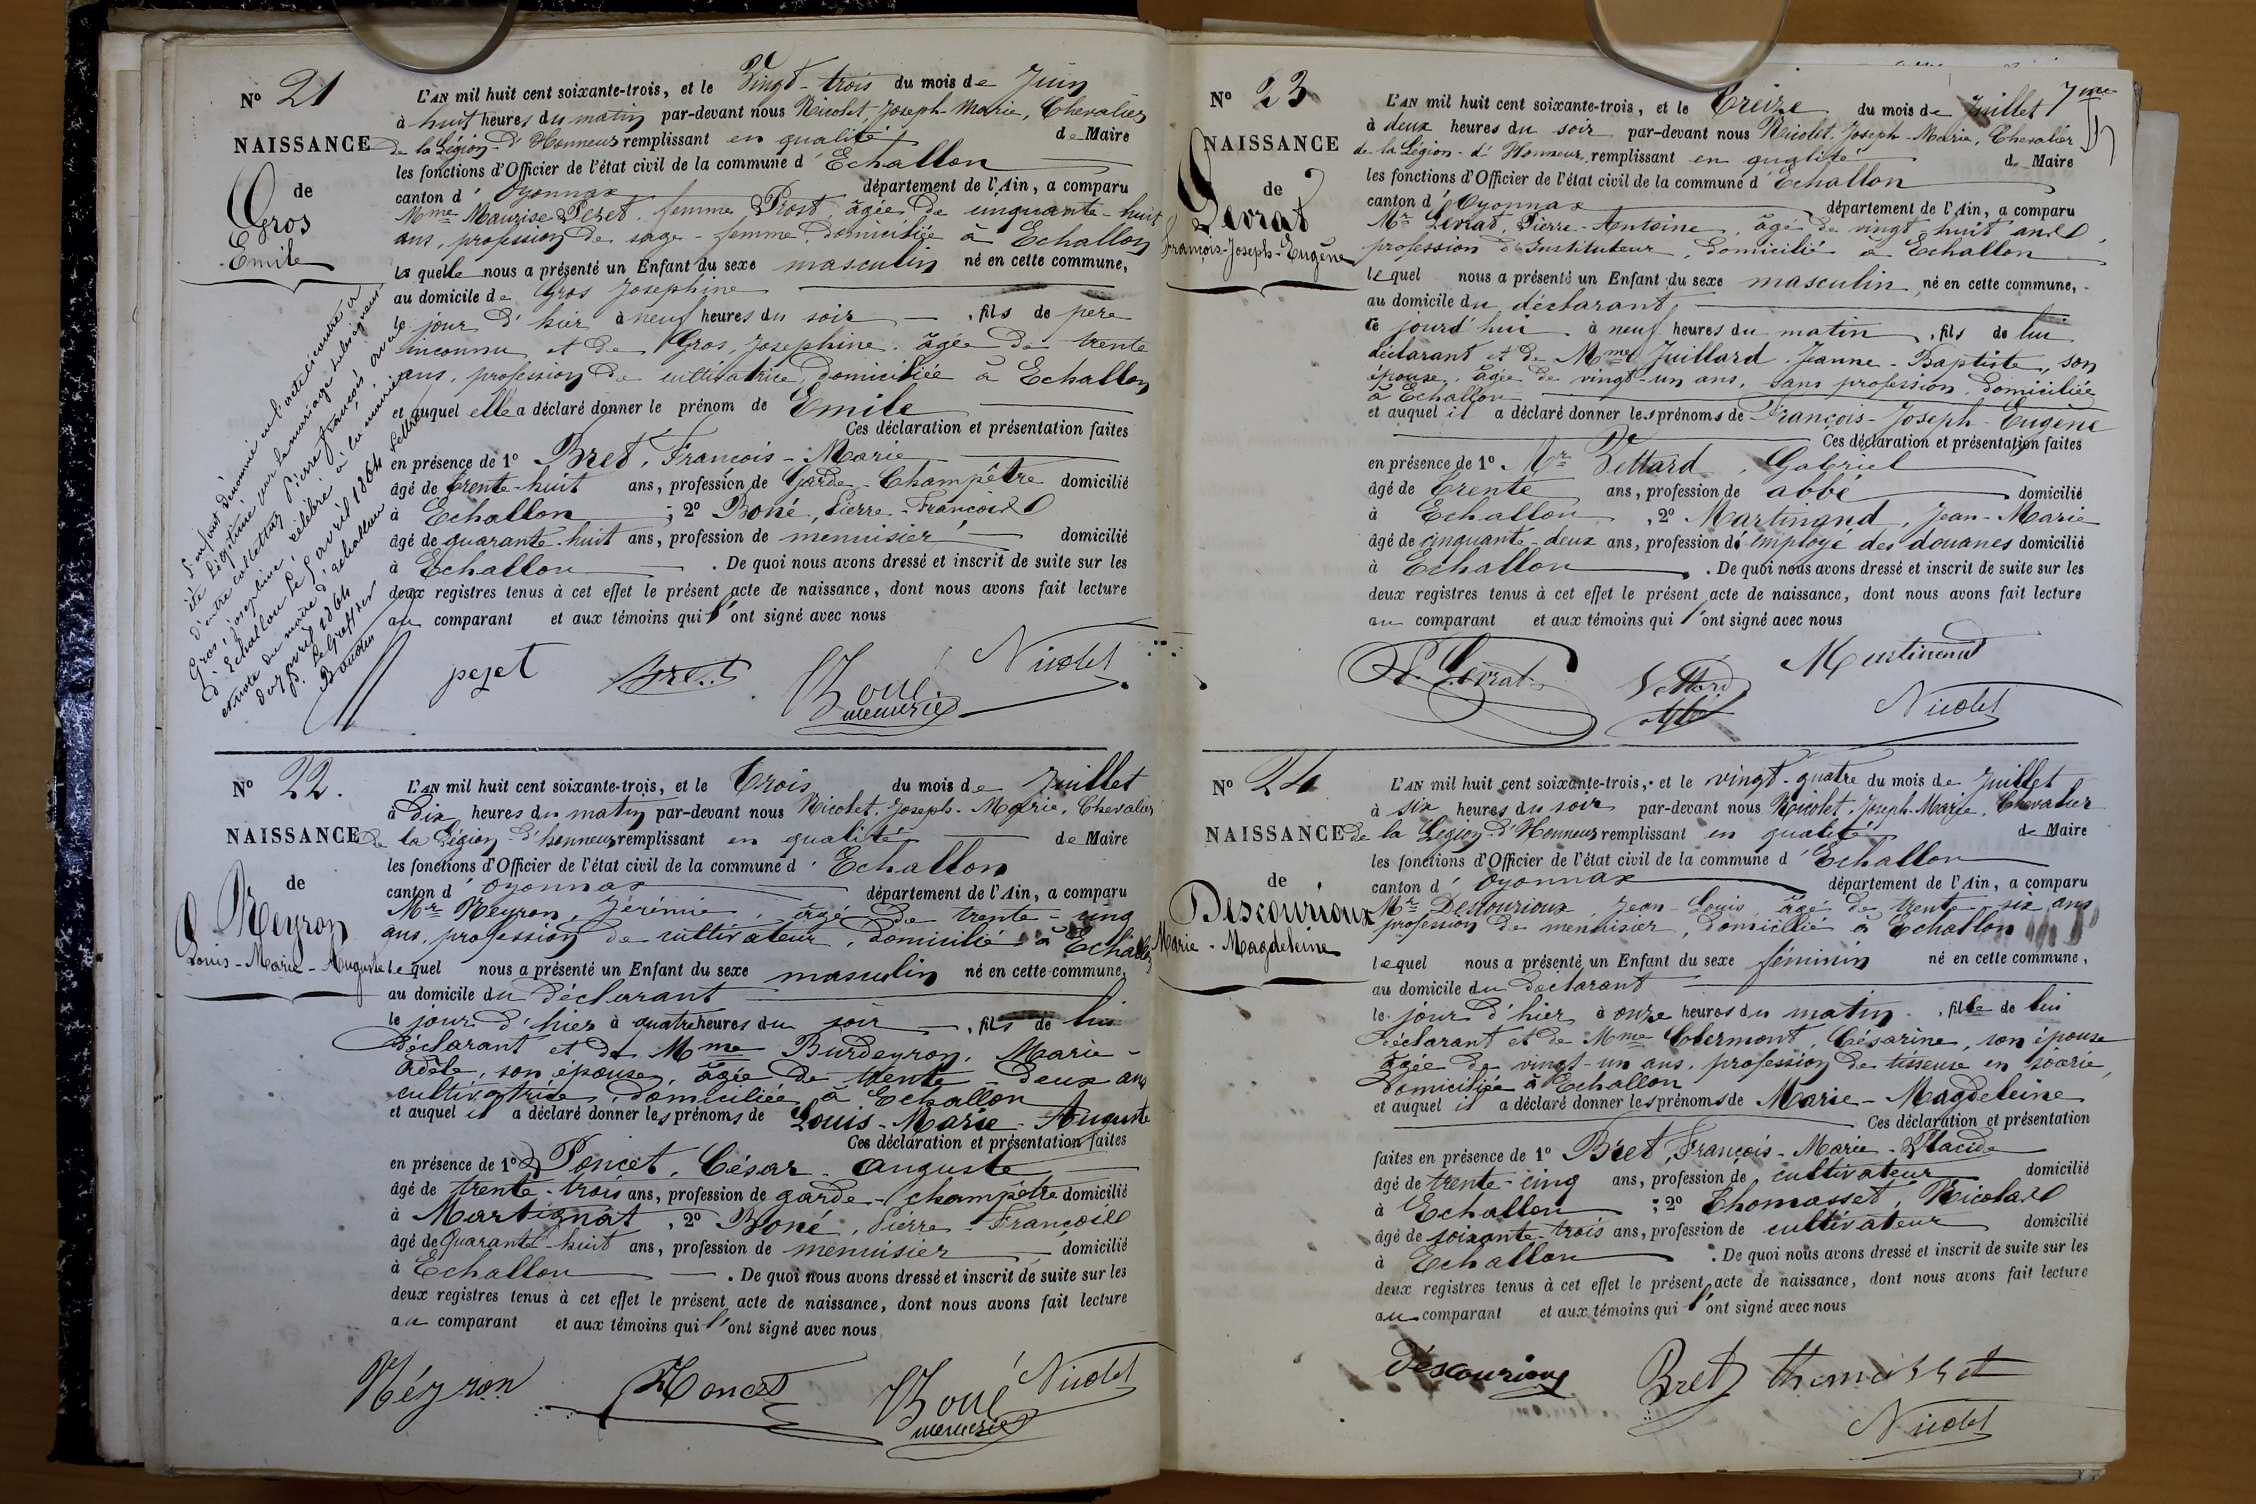 N° 21
NAISSANCE
de
Gros
Emile
L'AN mil huit cent soixante-trois, et le Vingt-trois du mois de Juin
à huit heures du matin par-devant nous Nicolet, Joseph-Marie, Chevalier
de la Légion-d'Honneur remplissant en qualité de Maire
les fonctions d'Officier de l'état civil de la commune d'Echallon
canton d'Oyonnax département de l'Ain, a comparu
Mme Maurise Peset, femme Prost, âgée de cinquante-huit
ans, profession de sage-femme, domiciliée à Echallon
laquelle nous a présenté un Enfant du sexe masculin né en cette commune,
au domicile de Gros Josephine
le jour d'hier à neuf heures du soir, fils de père
inconnu et de Gros, Josephine, âgée de trente
ans, profession de cultivatrice, domiciliée à Echallon
et auquel elle a déclaré donner le prénom de Emile
Ces déclaration et présentation faites
en présence de 1° Bret, François-Marie
âgé de trente-huit ans, profession de Garde-Champêtre domicilié
à Echallon ; 2° Boné, Pierre-François
âgé de quarante-huit ans, profession de menuisier domicilié
à Echallon. De quoi nous avons dressé et inscrit de suite sur les
deux registres tenus à cet effet le présent acte de naissance, dont nous avons fait lecture
au comparant et aux témoins qui l'ont signé avec nous
L'enfant dénommé en l'acte ci contre a
été légitimé par le mariage subséquent
d'entre Collettaz Pierre françois avec
Gros Josephine, célébré à la mairie
d'Echallon le 9 avril 1864 Lettre
et note du maire d'échallon
du avril 1864
Le Greffier
peset Bret Boné menuisier Nicolet
N° 22.
NAISSANCE
de
Neyron
Louis-Marie-Auguste
L'AN mil huit cent soixante-trois, et le Trois du mois de Juillet
à Dix heures du matin par-devant nous Nicolet, Joseph-Marie, Chevalier
de la Légion-d'honneur remplissant en qualité de Maire
les fonctions d'Officier de l'état civil de la commune d'Echallon
canton d'Oyonnax département de l'Ain, a comparu
Mr Neyron, Jérémie, âgé de trente-cinq
ans, profession de cultivateur, domicilié à Echallon
lequel nous a présenté un Enfant du sexe masculin né en cette commune,
au domicile du déclarant
le jour d'hier à quatre heures du soir, fils de lui
déclarant et de Mme Burdeyron, Marie-
Adèle, son épouse, âgée de trente-deux ans
cultivatrice, domiciliée à Echallon
et auquel il a déclaré donner les prénoms de Louis-Marie-Auguste
Ces déclaration et présentation faites
en présence de 1° Poncet, César-Auguste
âgé de trente-trois ans, profession de garde-champêtre domicilié
à Martignat, 2° Boné, Pierre-François
âgé de Quarante-huit ans, profession de menuisier domicilié
à Echallon. De quoi nous avons dressé et inscrit de suite sur les
deux registres tenus à cet effet le présent acte de naissance, dont nous avons fait lecture
au comparant et aux témoins qui l'ont signé avec nous
Néyron Poncet Boné menuisier Nicolet
N° 23
NAISSANCE
de
Levrat
François-Joseph-Eugène
7me
L'AN mil huit cent soixante-trois, et le Treize du mois de Juillet
à deux heures du soir par-devant nous Nicolet, Joseph-Marie, Chevalier
de la Légion-d'Honneur, remplissant en qualité de Maire
les fonctions d'Officier de l'état civil de la commune d'Echallon
canton d'Oyonnax département de l'Ain, a comparu
Mr Levrat, Pierre-Antoine, âgé de vingt-huit ans,
profession d'Instituteur, domicilié à Echallon
lequel nous a présenté un Enfant du sexe masculin né en cette commune,
au domicile du déclarant
ce jourd'hui à neuf heures du matin, fils de lui
déclarant et de Mme Juillard, Jeanne-Baptiste, son
épouse, âgée de vingt-un ans, sans profession, domiciliée
à Echallon
et auquel il a déclaré donner les prénoms de François-Joseph-Eugène
Ces déclaration et présentation faites
en présence de 1° Mr Vettard, Gabriel
âgé de trente ans, profession de abbé domicilié
à Echallon, 2° Martinand, Jean-Marie
âgé de cinquante-deux ans, profession d'employé des douanes domicilié
à Echallon. De quoi nous avons dressé et inscrit de suite sur les
deux registres tenus à cet effet le présent acte de naissance, dont nous avons fait lecture
au comparant et aux témoins qui l'ont signé avec nous
Levrat Vettard Martinand Nicolet
N° 24
NAISSANCE
de
Descourioux
Marie-Magdeleine
L'AN mil huit cent soixante-trois, et le vingt-quatre du mois de Juillet
à six heures du soir par-devant nous Nicolet, Joseph-Marie, Chevalier
de la Légion-d'Honneur remplissant en qualité de Maire
les fonctions d'Officier de l'état civil de la commune d'Echallon
canton d'Oyonnax département de l'Ain, a comparu
Mr Descourioux, Jean-Louis, âgé de trente-six ans
profession de menuisier, domicilié à Echallon
lequel nous a présenté un Enfant du sexe féminin né en cette commune,
au domicile du déclarant
le jour d'hier à onze heures du matin, fille de lui
déclarant et de Mme Clermont, Césarine, son épouse
âgée de vingt-un ans, profession de tisseuse en soierie,
domiciliée à Echallon
et auquel il a déclaré donner les prénoms de Marie-Magdeleine
Ces déclaration et présentation
faites en présence de 1° Bret, François-Marie-Placide
âgé de trente-cinq ans, profession de cultivateur domicilié
à Echallon ; 2° Thomasset, Nicolas
âgé de soixante-trois ans, profession de cultivateur domicilié
à Echallon. De quoi nous avons dressé et inscrit de suite sur les
deux registres tenus à cet effet le présent acte de naissance, dont nous avons fait lecture
au comparant et aux témoins qui l'ont signé avec nous
Déscourioux Bret Thomasset
Nicolet